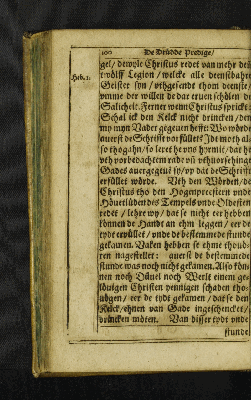 100 De Drüdde Predige/
gel/ dewyle Christus redet van mehr den
Heb. 1. twölff Legion/ welcke alle deenstbahre
Geister syn/ vthgesende thom denste/
vmme der willen de dar eruen schölen de
Salicheit. Ferner wenn Christus sprickt:
Schal ick den Kelck nicht drincken/ den
my myn Vader gegeuen hefft: Wo würde
auerst de Schrifft vorfüllet? Jdt moth al-
so thogahn/ so leret he vns hyrmit/ dat he
vth vorbedachtem rade vñ vthuorsehinge
Gades auergegeuẽ sy/ vp dat de Schrifft
erfüllet würde. Vth den Wörden/ de
Christus tho den Hogenprestern vnde
Hövetlüden des Tempels vnde Oldesten
redet/ lehre wy/ dat se nicht eer hebben
können de Handt an ehm leggen/ eer de
tydt erfüllet/ vnde de bestemmede stunde
gekamen. Vaken hebben se ehme thouö-
ren nagestellet: auerst de bestemmede
stunde was noch nicht gekamen. Also kön-
nen noch Düuel noch Werlt einem ge-
löuigen Christen pennigen schaden tho-
uögen/ eer de tydt gekamen/ dat se den
Kelck/ ehnen van Gade ingeschencket/
drincken möten. Van disser tydt vnde
stunde